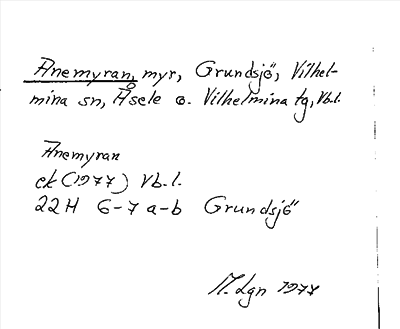 Anemyran, myr, Grundsjö, Vilhel-
mina sn, Åsele o. Vilhelmina tg, Vb.l.
Anemyran
ek (1977) Vb.l.
22H 6-7 a-b Grundsjö
M. Lgn 1977